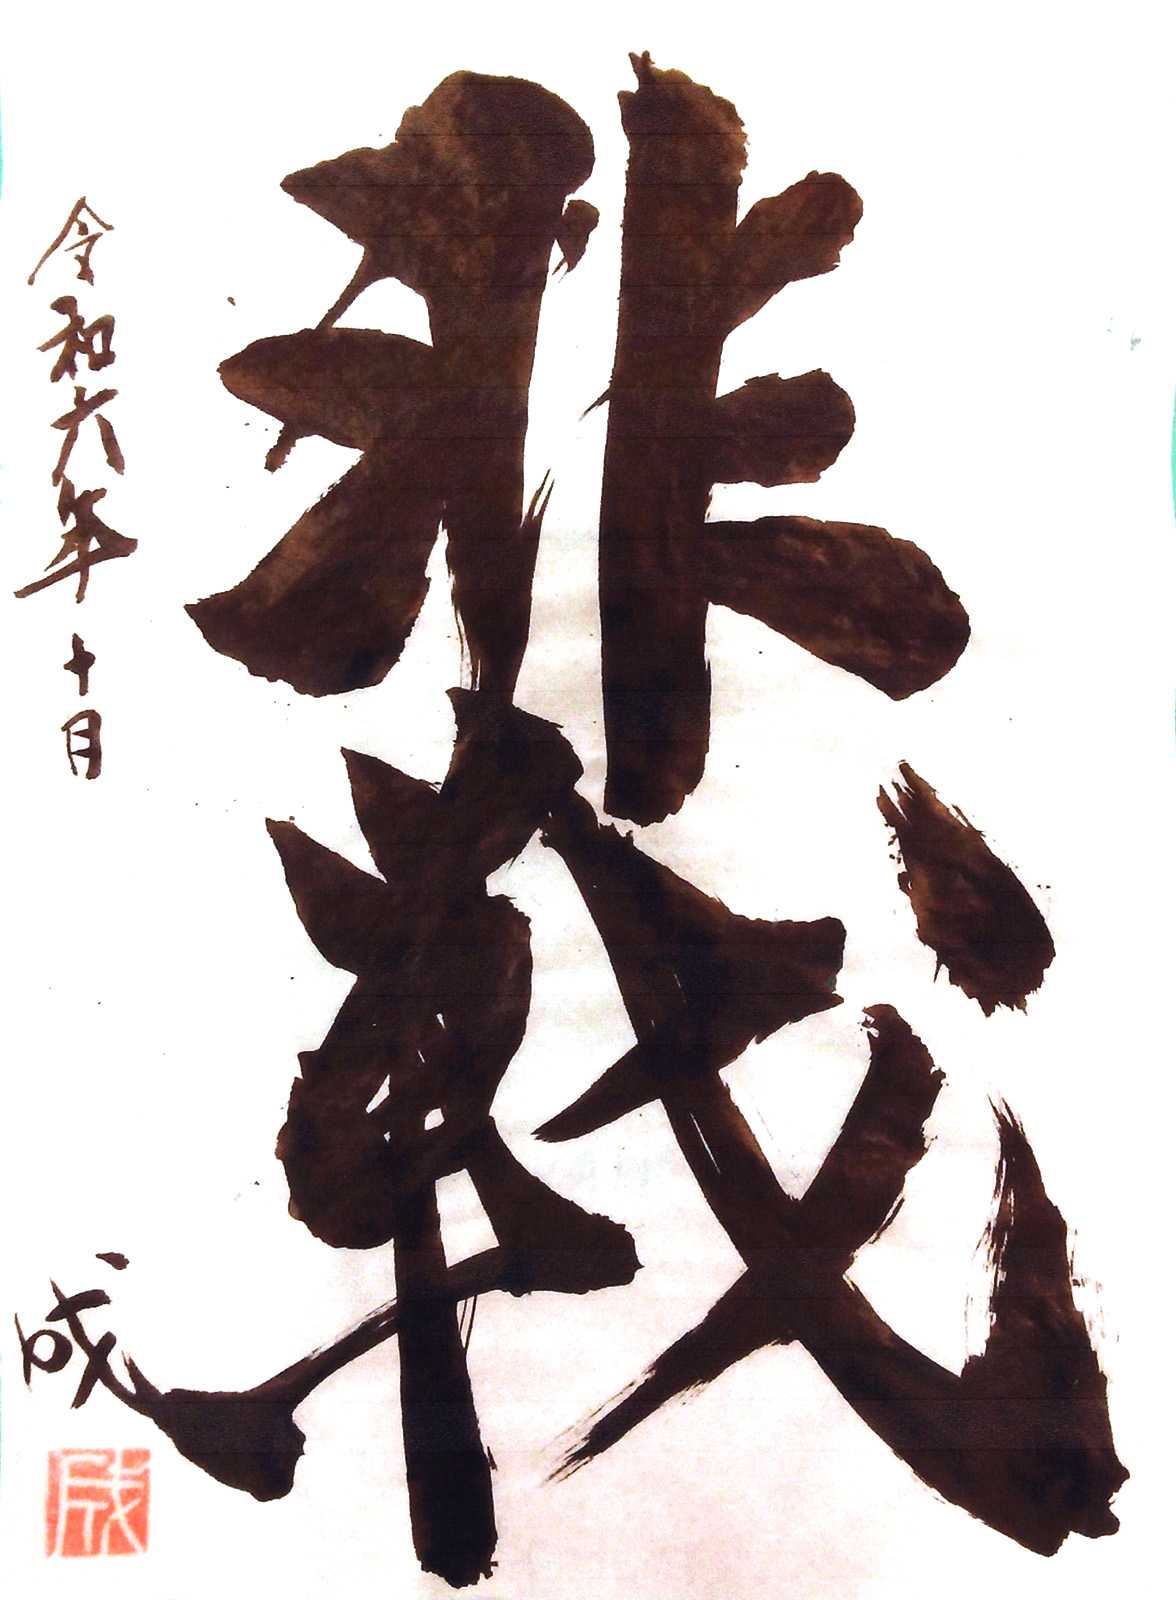 非戦
令和六年十月
成
成